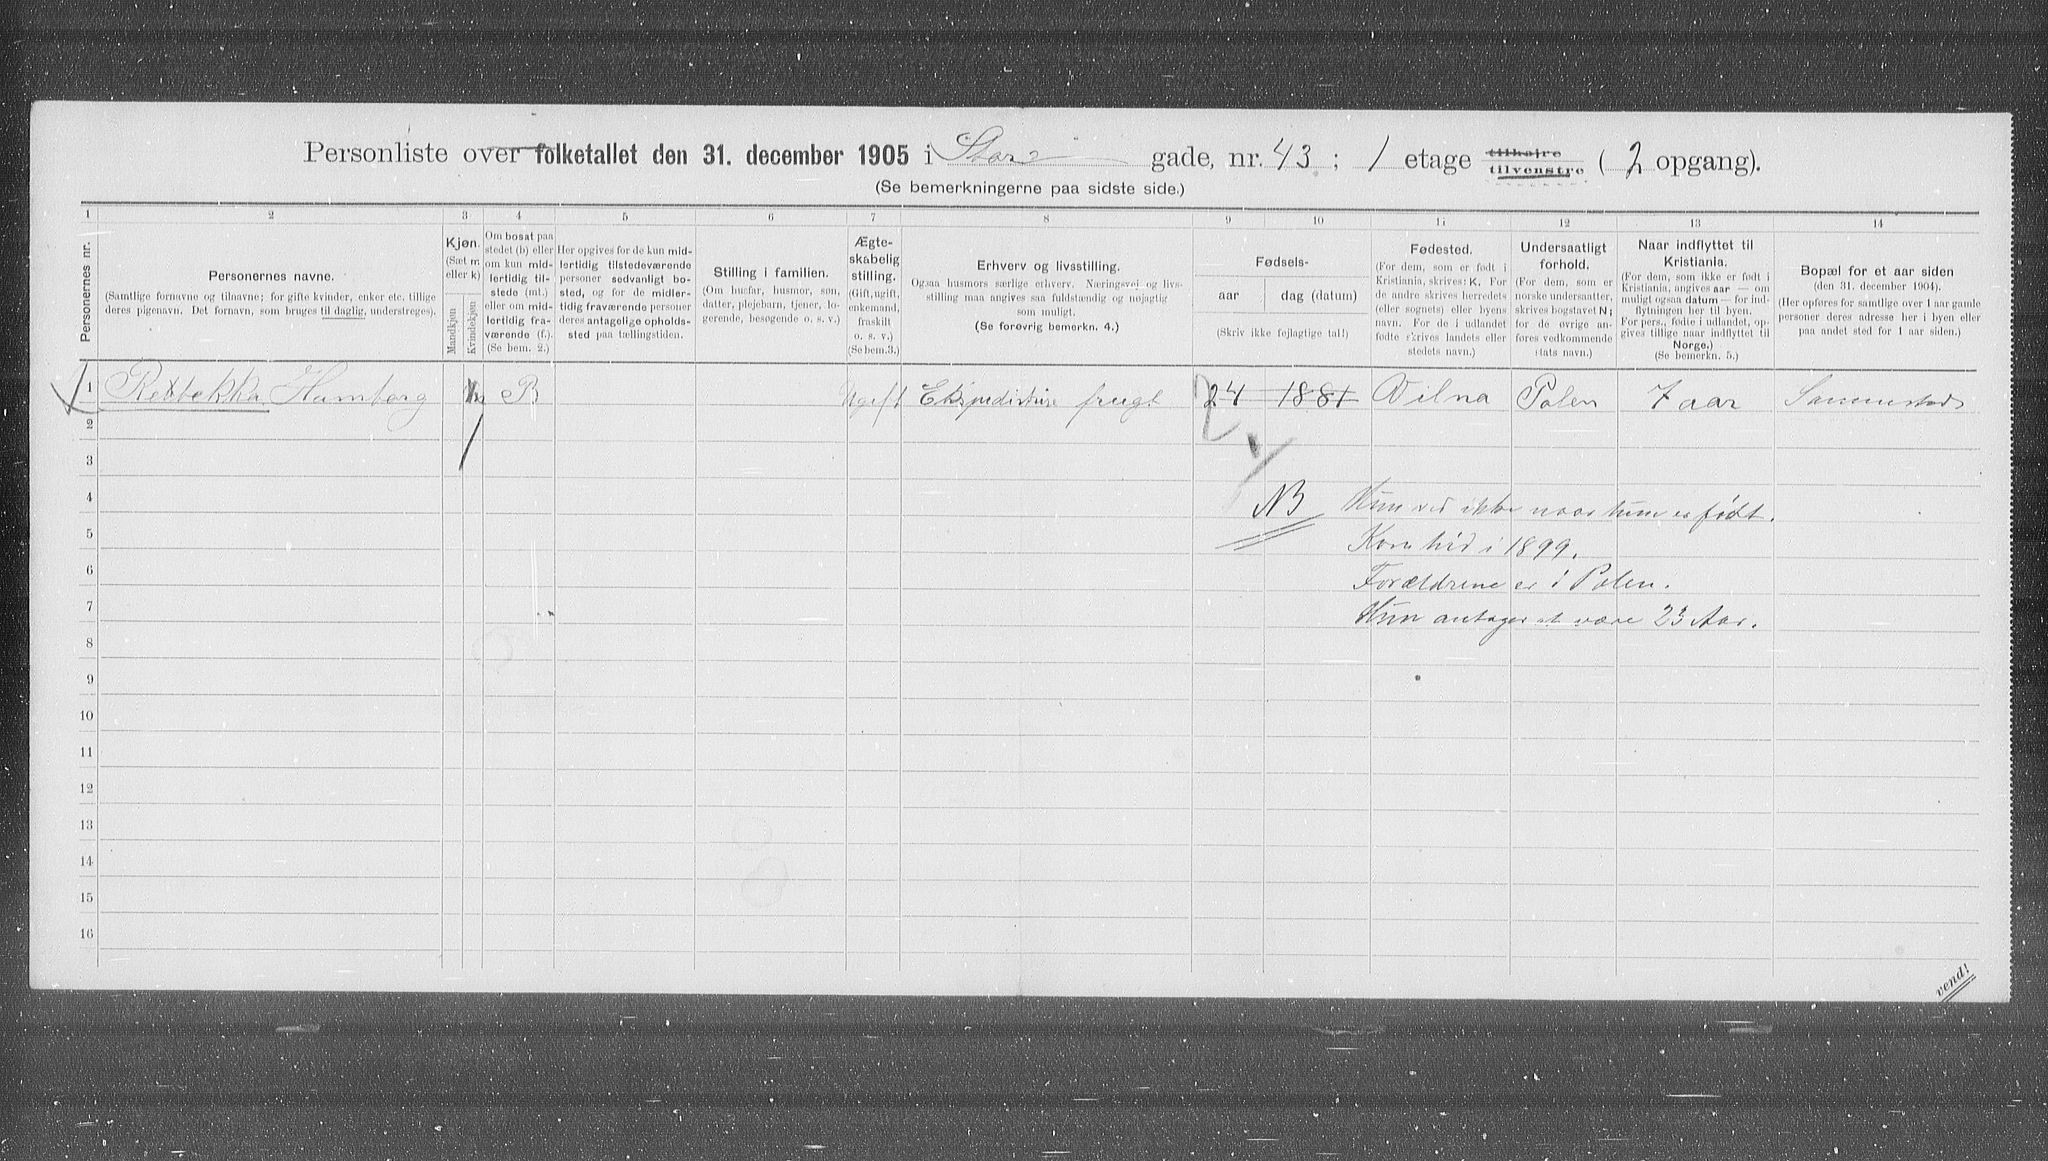 Personliste over folketallet den 31. december 1905 i Stor gade, nr. 43 ; 1 etage tilhøjre tilvenstre ( 2 opgang).
(Se bemerkningerne paa sidste side.)
1 2 3 4 5 6 7 8 9 10 11 12 13 14
Personernes nr.
Personernes navne.
(Samtlige fornavne og tilnavne; for gifte kvinder, enker etc. tillige
deres pigenavn. Det fornavn, som bruges til daglig, understreges).
Kjøn.
(Sæt m
eller k)
Mandkjøn
Kvindekjøn
Om bosat paa
stedet (b) eller
om kun mid-
lertidig til-
stede (mt.)
eller om mid-
lertidig fra-
værende (f.).
(Se bem. 2.)
Her opgives for de kun mid-
lertidig tilstedeværende
personer sedvanligt bo-
sted, og for de midler-
tidig fraværende personer
deres antagelige opholds-
sted paa tællingstiden.
Stilling i familien.
(Om husfar, husmor, søn,
datter, plejebarn, tjener, lo-
gerende, besøgende o. s. v.)
Ægte-
skabelig
stilling.
(Gift, ugift,
enkemand,
fraskilt
o. s. v.)
(Se bem.3.)
Erhverv og livsstilling.
Ogsaa husmors særlige erhverv. Næringsvej og livs-
stilling maa angives saa fuldstændig og nøjagtig
som muligt.
(Se forøvrig bemerkn. 4.)
Fødsels-
aar
dag (datum)
(Skriv ikke fejlagtige tal!)
Fødested.
(For dem, som er født i
Kristiania, skrives: K. For
de andre skrives herredets
(eller sognets) eller byens
navn. For de i udlandet
fødte skrives landets eller
stedets navn.)
Undersaatligt
forhold.
(For dem, som er
norske undersaatter,
skrives bogstavet N;
for de øvrige an-
føres vedkommende
stats navn.)
Naar indflyttet til
Kristiania.
(For dem, som ikke er født i
Kristiania, angives aar — om
muligt ogsaa datum — for ind-
flytningen her til byen.
For pers., fødte i udlandet, op-
gives tillige naar indflyttet til
Norge.)
(Se bemerkn. 5.)
Bopæl for et aar siden
(den 31. december 1904).
(Her opføres for samtlige over 1 aar gamle
personer deres adresse her i byen eller
paa andet sted for 1 aar siden.)
1 Rebbekka Hamborg B Ugift Ekspeditrise frugt 24 1881 Vilna Polen 7 aar Sammested
2
3
4 NB Hun ved ikke naar hun er født.
5 Kom hid i 1899.
6 Forældrene er i Polen.
7 Hun antages at være 23 Aar.
8
9
10
11
12
13
14
15
16
vend!